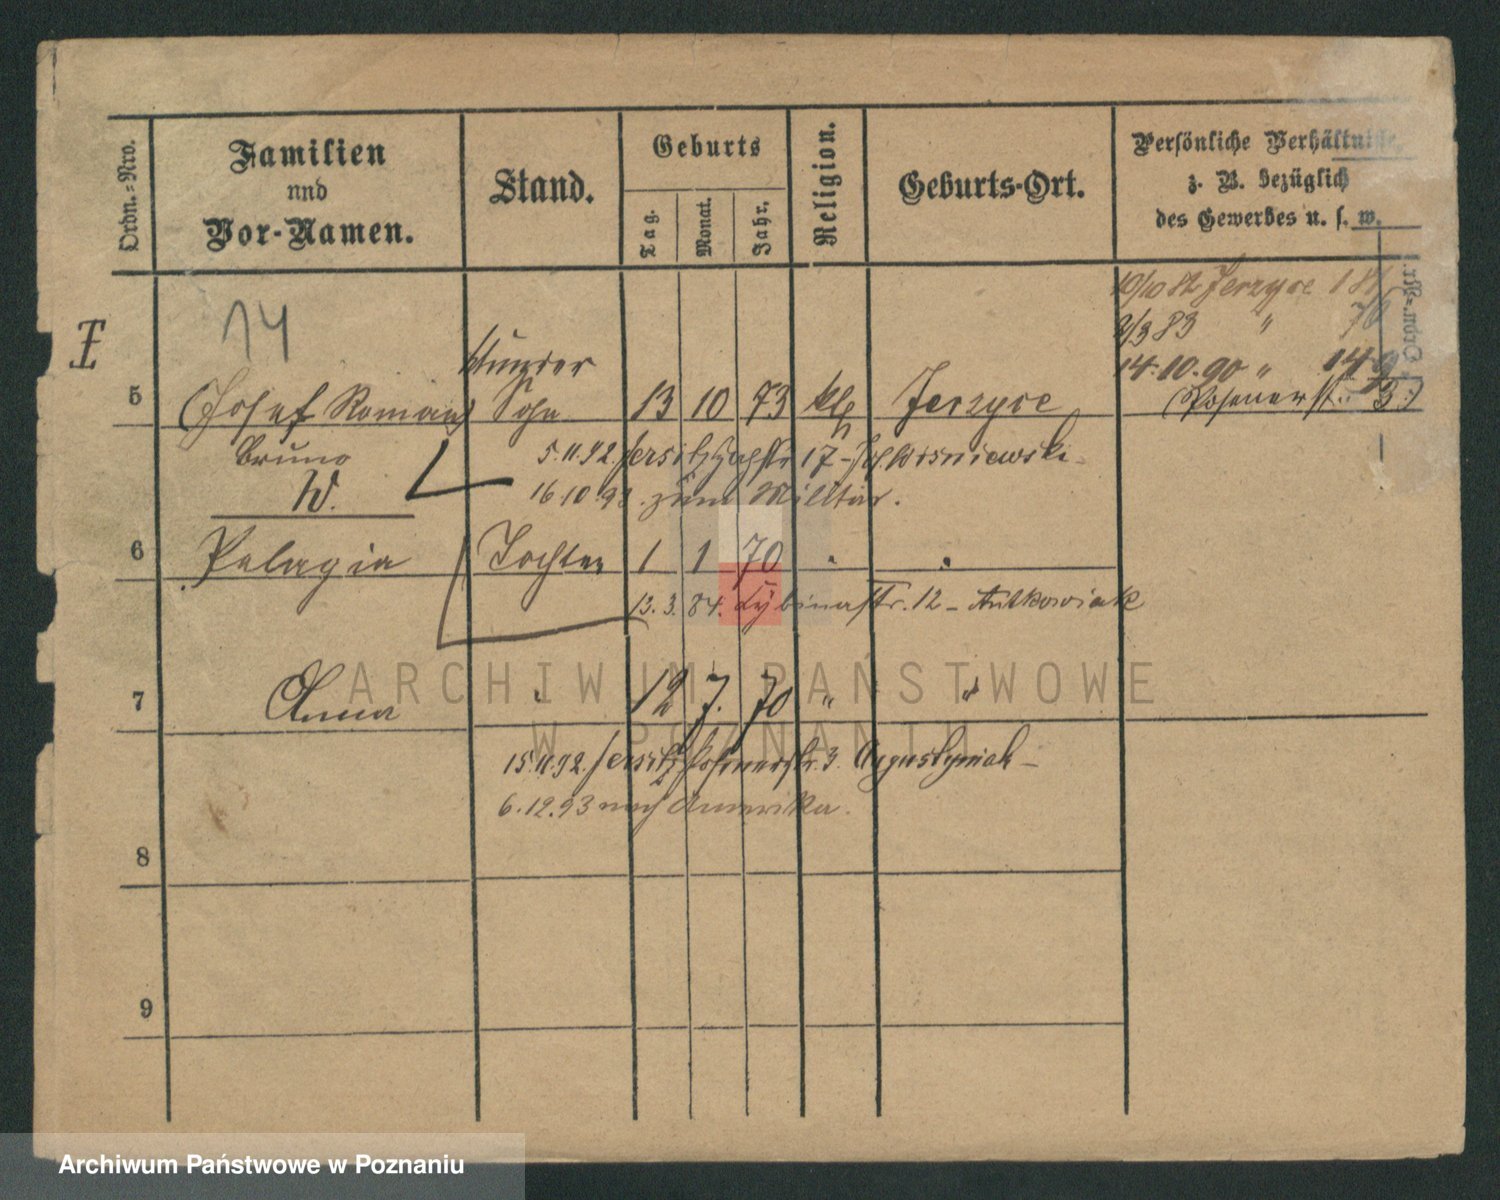 Ordn.=Nro.
Familien
und
Vor-Namen.
Stand.
Geburts
Tag.
Monat.
Jahr.
Religion.
Geburts-Ort.
Persönliche Verhältnisse,
z. B. bezüglich
des Gewerbes u. s. w.
14
10/10 82 Jerzyce 18
3/3 83 " 7
14.10.90 " 149
(Posenerstr. 3.)
5 (Josef Roman) Sohn 13 10 73 kth Jerzyce
Bruno
W.
5.11.92. Jersitz 17 - Wisniewski -
16.10.93. zum Militär.
6 Pelagia Tochter 1 1 70 " "
13.3.84. Lÿbinastr. 12 - Antkowiak
7 Anna " 12 7. 70 " "
15.11.92. Jersitz Posenerstr. 3. Augustyniak -
6.12.93 nach Amerika.
8
9
ARCHIWUM PAŃSTWOWE
W POZNANIU
Archiwum Państwowe w Poznaniu